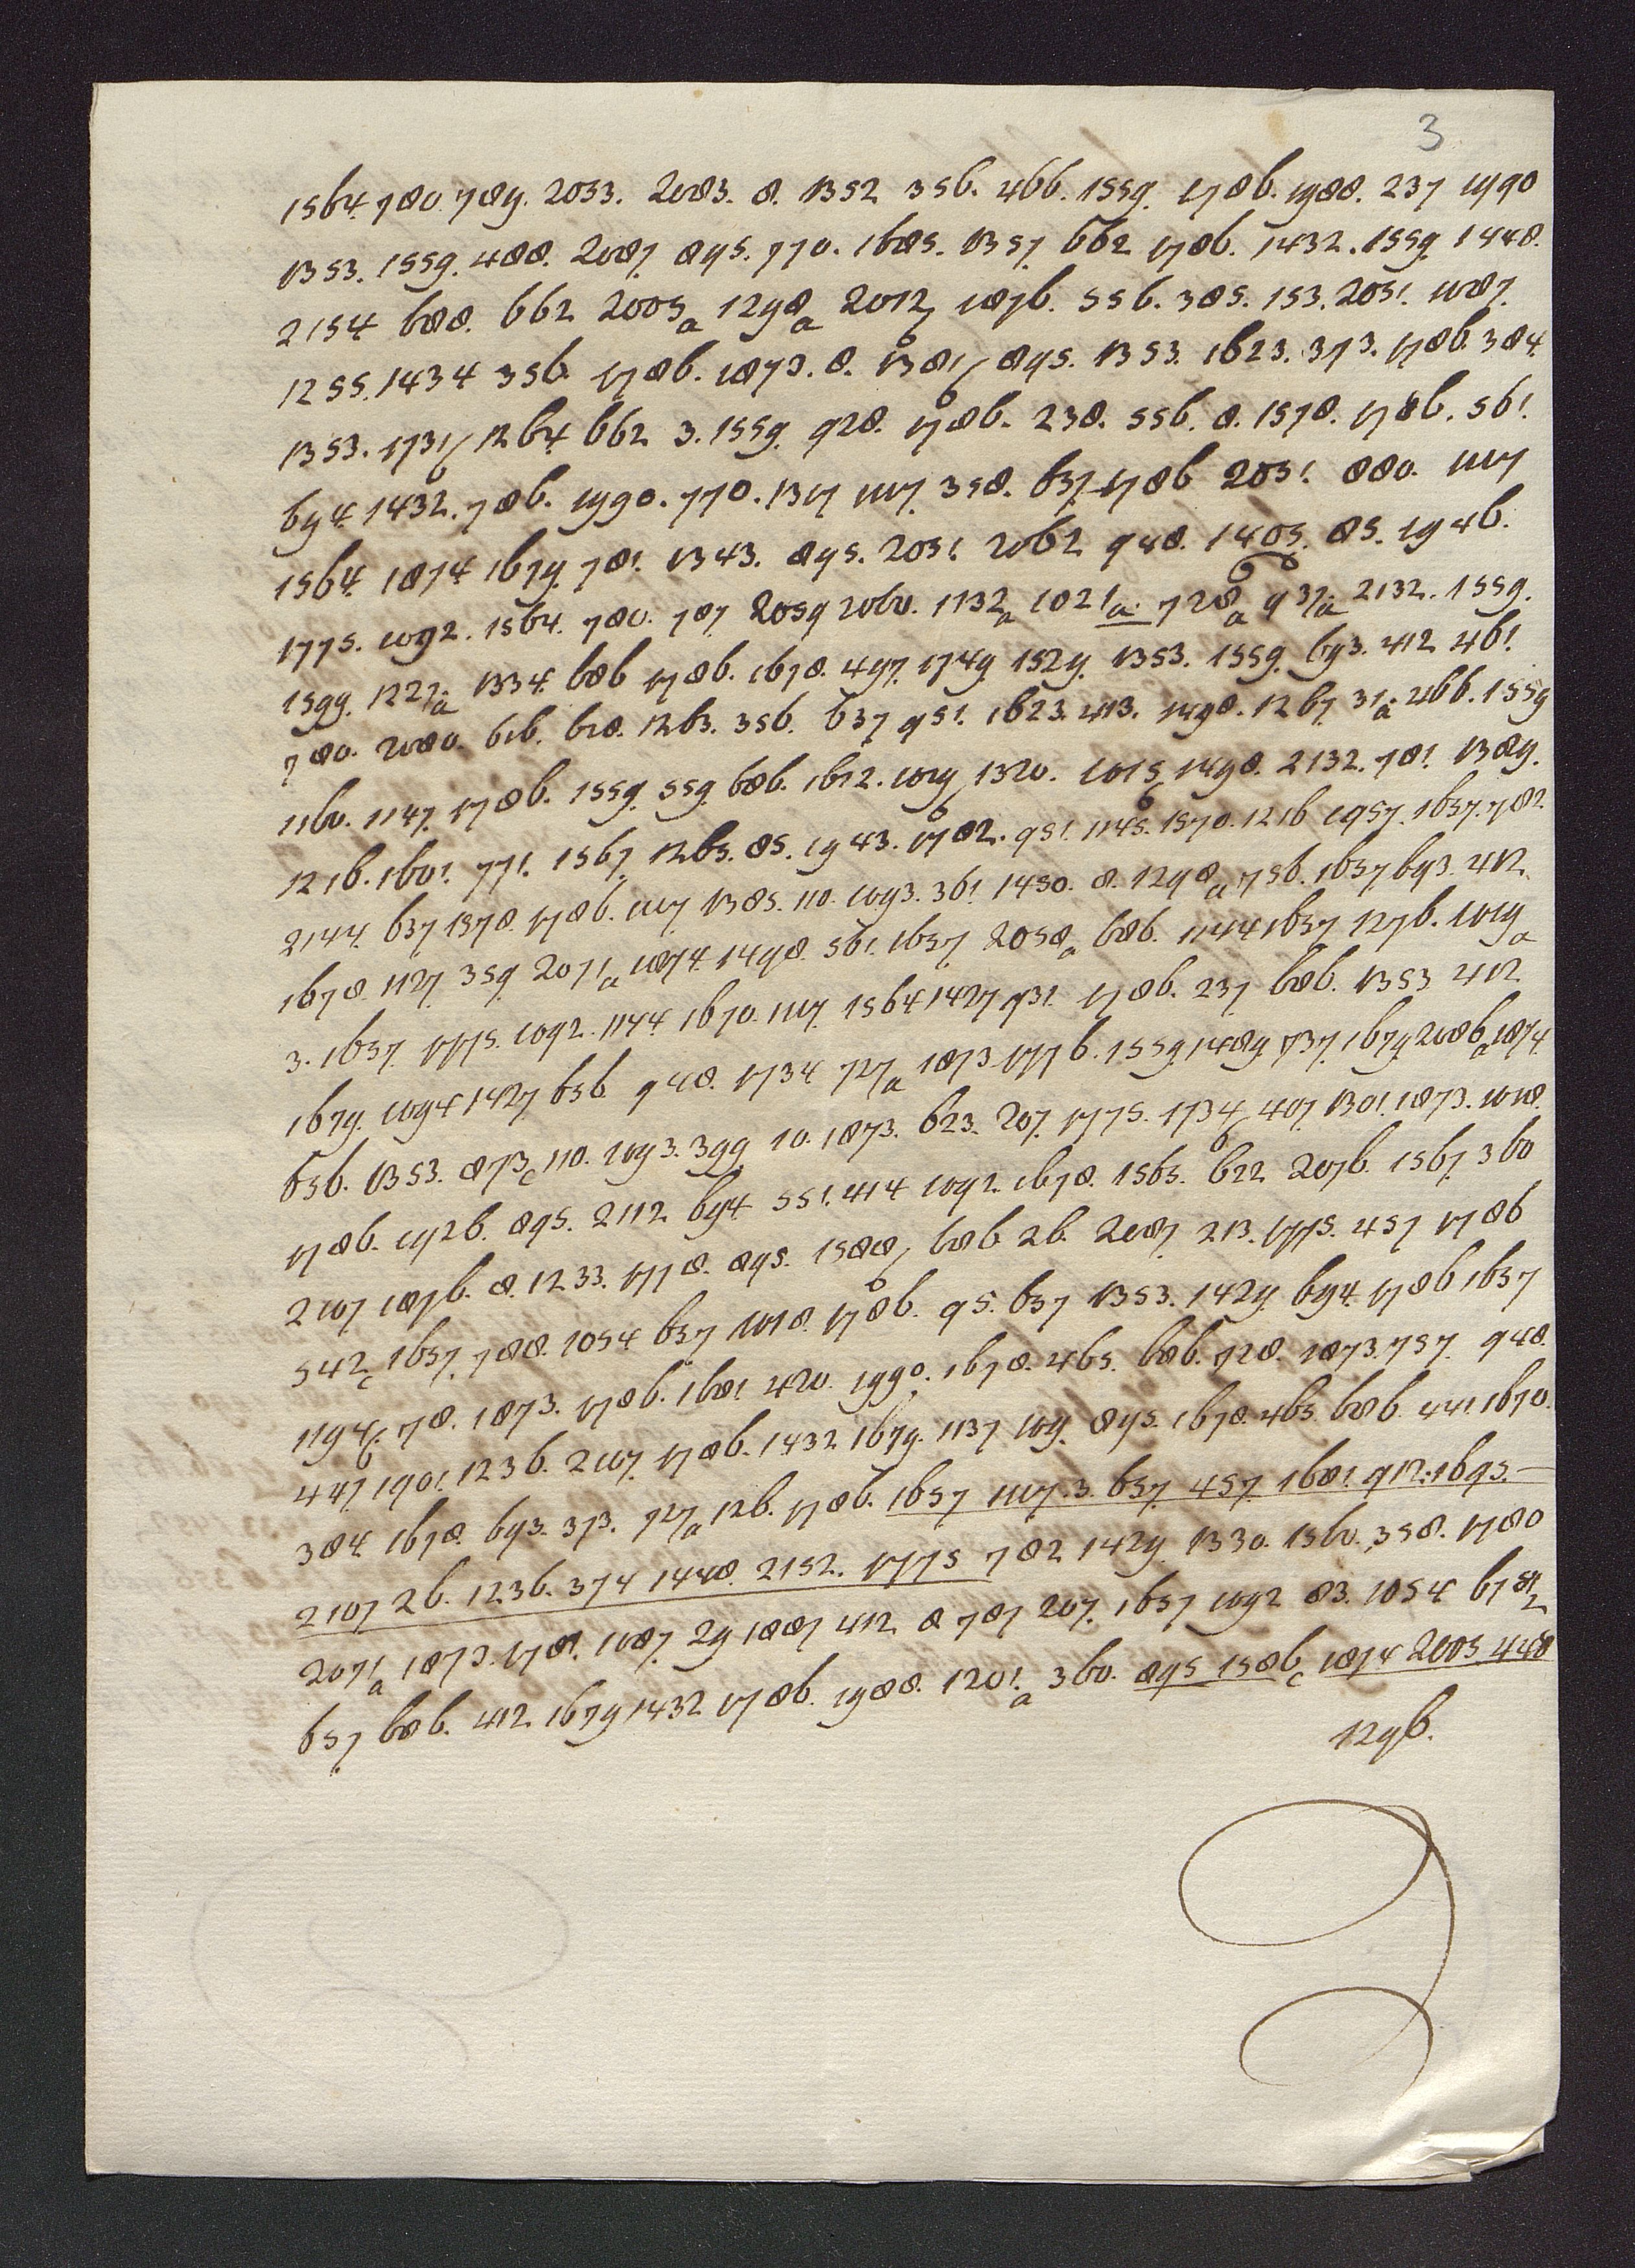 3
1564. 780. 789. 2053. 2083. 8. 1352 356. 466. 1559. 1786. 1988. 237 1990
1353. 1559. 488. 2087 895. 770. 1685. 1357. 662 1786. 1432. 1559. 1448.
2154 688. 662 2005a 1298a 2012b 1876. 556. 385. 153. 2051. 1087.
1255. 1434 356. 1786. 1873. 8. 1381b 895. 1353. 1623. 373. 1786. 384.
1353. 1731b 1264. 662 3. 1559. 928. 1786. 238. 556. 8. 1578. 1786. 561.
694. 1432. 786. 1990. 770. 1317 1117. 358. 637 1786 2051. 880. 1117
1564. 1874. 1679. 781. 1343. 895. 2051. 2062 948. 1405. 85. 1946.
1775. 1092. 1564. 780. 787 2059 2060. 1132a 1021a 728a 937a 2132. 1559.
1599. 1227a 1334. 686 1786. 1678. 497. 1749 1529. 1353. 1559. 693. 412 461
780. 2080. 616. 628. 1263. 356. 637 951. 1623. 413. 1498. 1267 31a 466. 1559
1160. 1147. 1786. 1559. 559. 686. 1612. 1029b 1320. 1015b 1498. 2132. 781. 1389.
1216. 1601. 771. 1567 1265. 85. 1943. 1782. 951. 1145. 1570. 1216 1957. 1657. 782
2144. 637 1378. 1786. 1117 1385. 110. 1093. 361 1450. 8. 1298a 756. 1657 693. 412.
1678. 1127. 359 2071a 1874. 1498. 561. 1657 2058a 686. 1144 1657 1276. 1019a
3. 1657. 1775. 1092. 1144. 1670. 1117. 1564 1427 931. 1786. 237 686. 1353 412
1679. 1094 1427 656 948. 1734 727a 1873 1776. 1559 1489 737. 1679. 2086a 1874
656. 1353. 873c 110. 1093. 399 10. 1873. 623. 207. 1775. 1734b 407 1301. 1873. 1018.
1786. 1926. 895. 2112 694. 551. 414 1092. 1678. 1565. 622 2076. 1567 360
2107 1876. 8. 1233. 1778. 895. 1588b 686 26. 2087. 213. 1775. 457 1786
542c 1657. 788. 1054 657 1018. 1786. 95. 657 1353. 1429. 694. 1786 1657
1194b 78. 1873. 1786. 1681 420. 1990. 1678. 465. 686. 728. 1873. 757. 948.
447 1901. 1236. 2107. 1786. 1432 1679. 1137 109. 895. 1678. 465. 686. 441 1670.
384. 1678. 693. 373. 727a 126. 1786. 1657 1117. 3. 657. 457. 1681. 912. 1695. —
2107 26. 1236. 374 1448. 2152. 1775 782 1429. 1330. 1560. 358. 1780
2071a 1873. 1781. 1087. 29 1887 412 8 787 207. 1657 1092 83. 1054
657 686. 412 1679 1432 1786. 1988. 1201a 360. 895 1586c 1874 2005 448
1296.